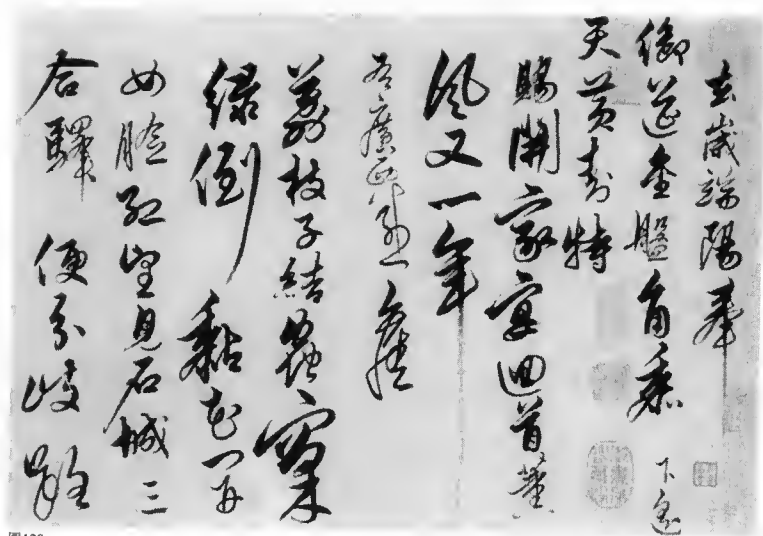 去歲端陽奉
御筵金盤角黍下遙
天黃封特
賜開家宴迴首薰
風又一年
荔枝子結蟲窠
綠倒黏花開
女臉紅望見石城三
合驛便分岐路